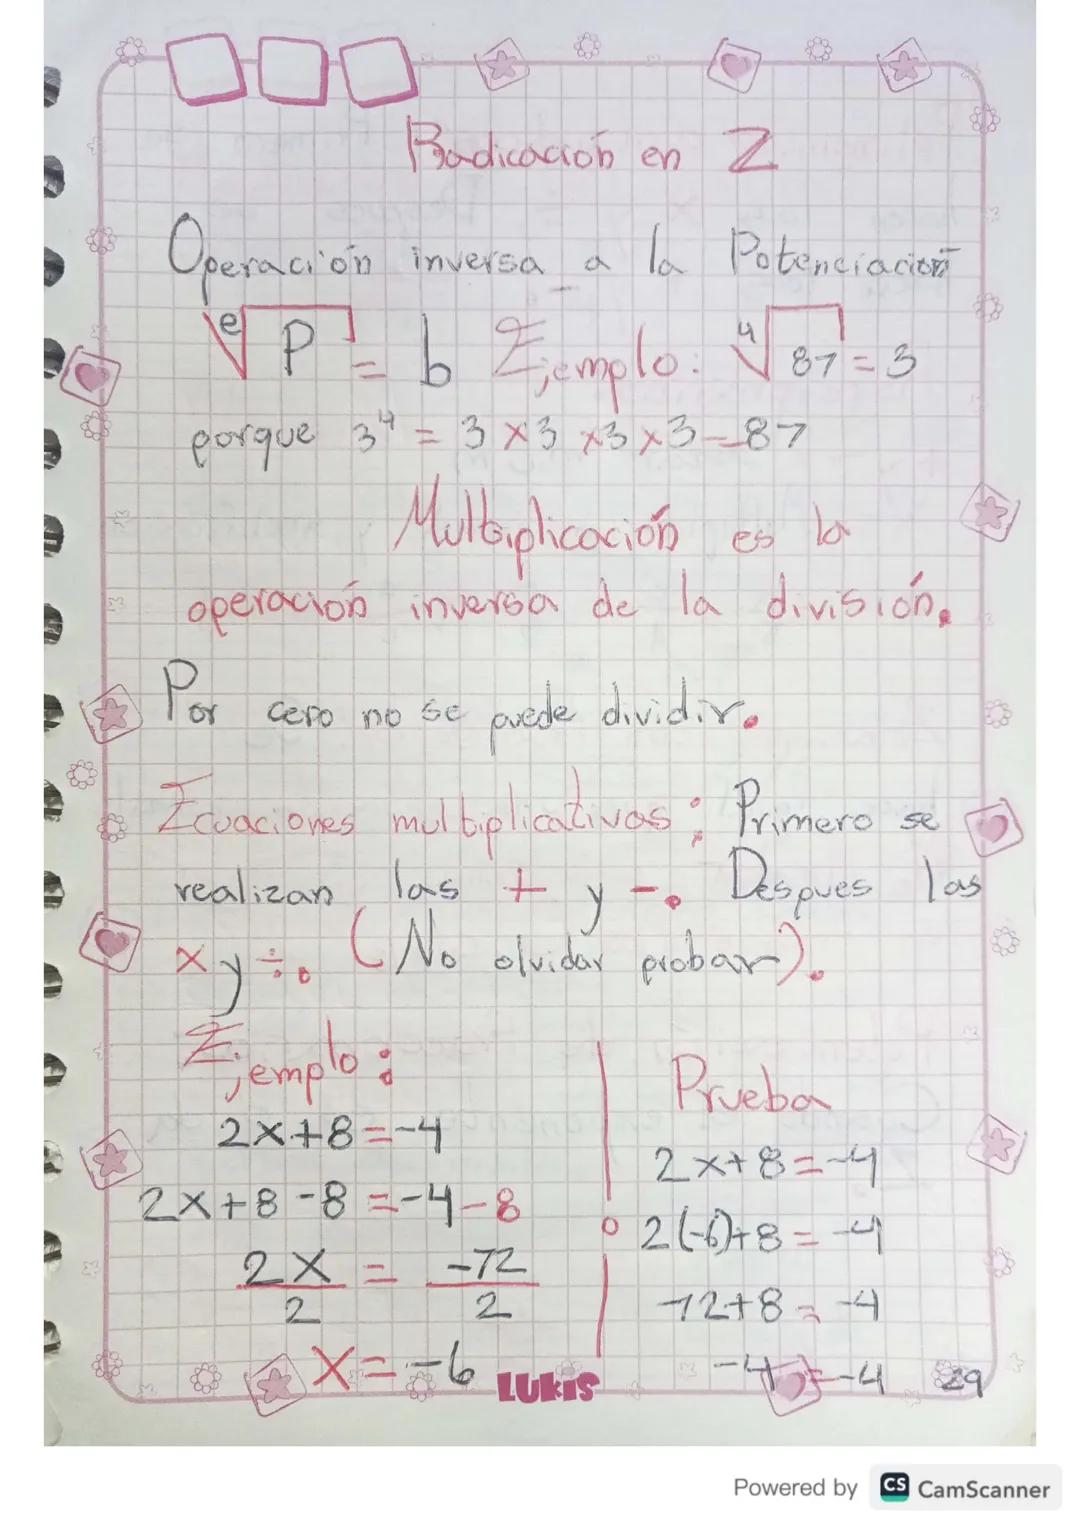 Radicación en Z
Operación inversa a la Potenciación
ᵉ√P = b Ejemplo: ⁴√81 = 3
porque 3⁴ = 3 × 3 × 3 × 3 = 81
Multiplicación es la
operación inversa de la división.
Por cero no se puede dividir.
Ecuaciones multiplicativas: Primero se
realizan las + y -. Despues las
× y ÷. (No olvidar probar).
Ejemplo:
2x+8=-4
2x+8-8=-4-8
2x/2 = -12/2
x=-6
Prueba
2x+8=-4
2(-6)+8=-4
-12+8=-4
-4=-4
LUKIS
29
Powered by CS CamScanner